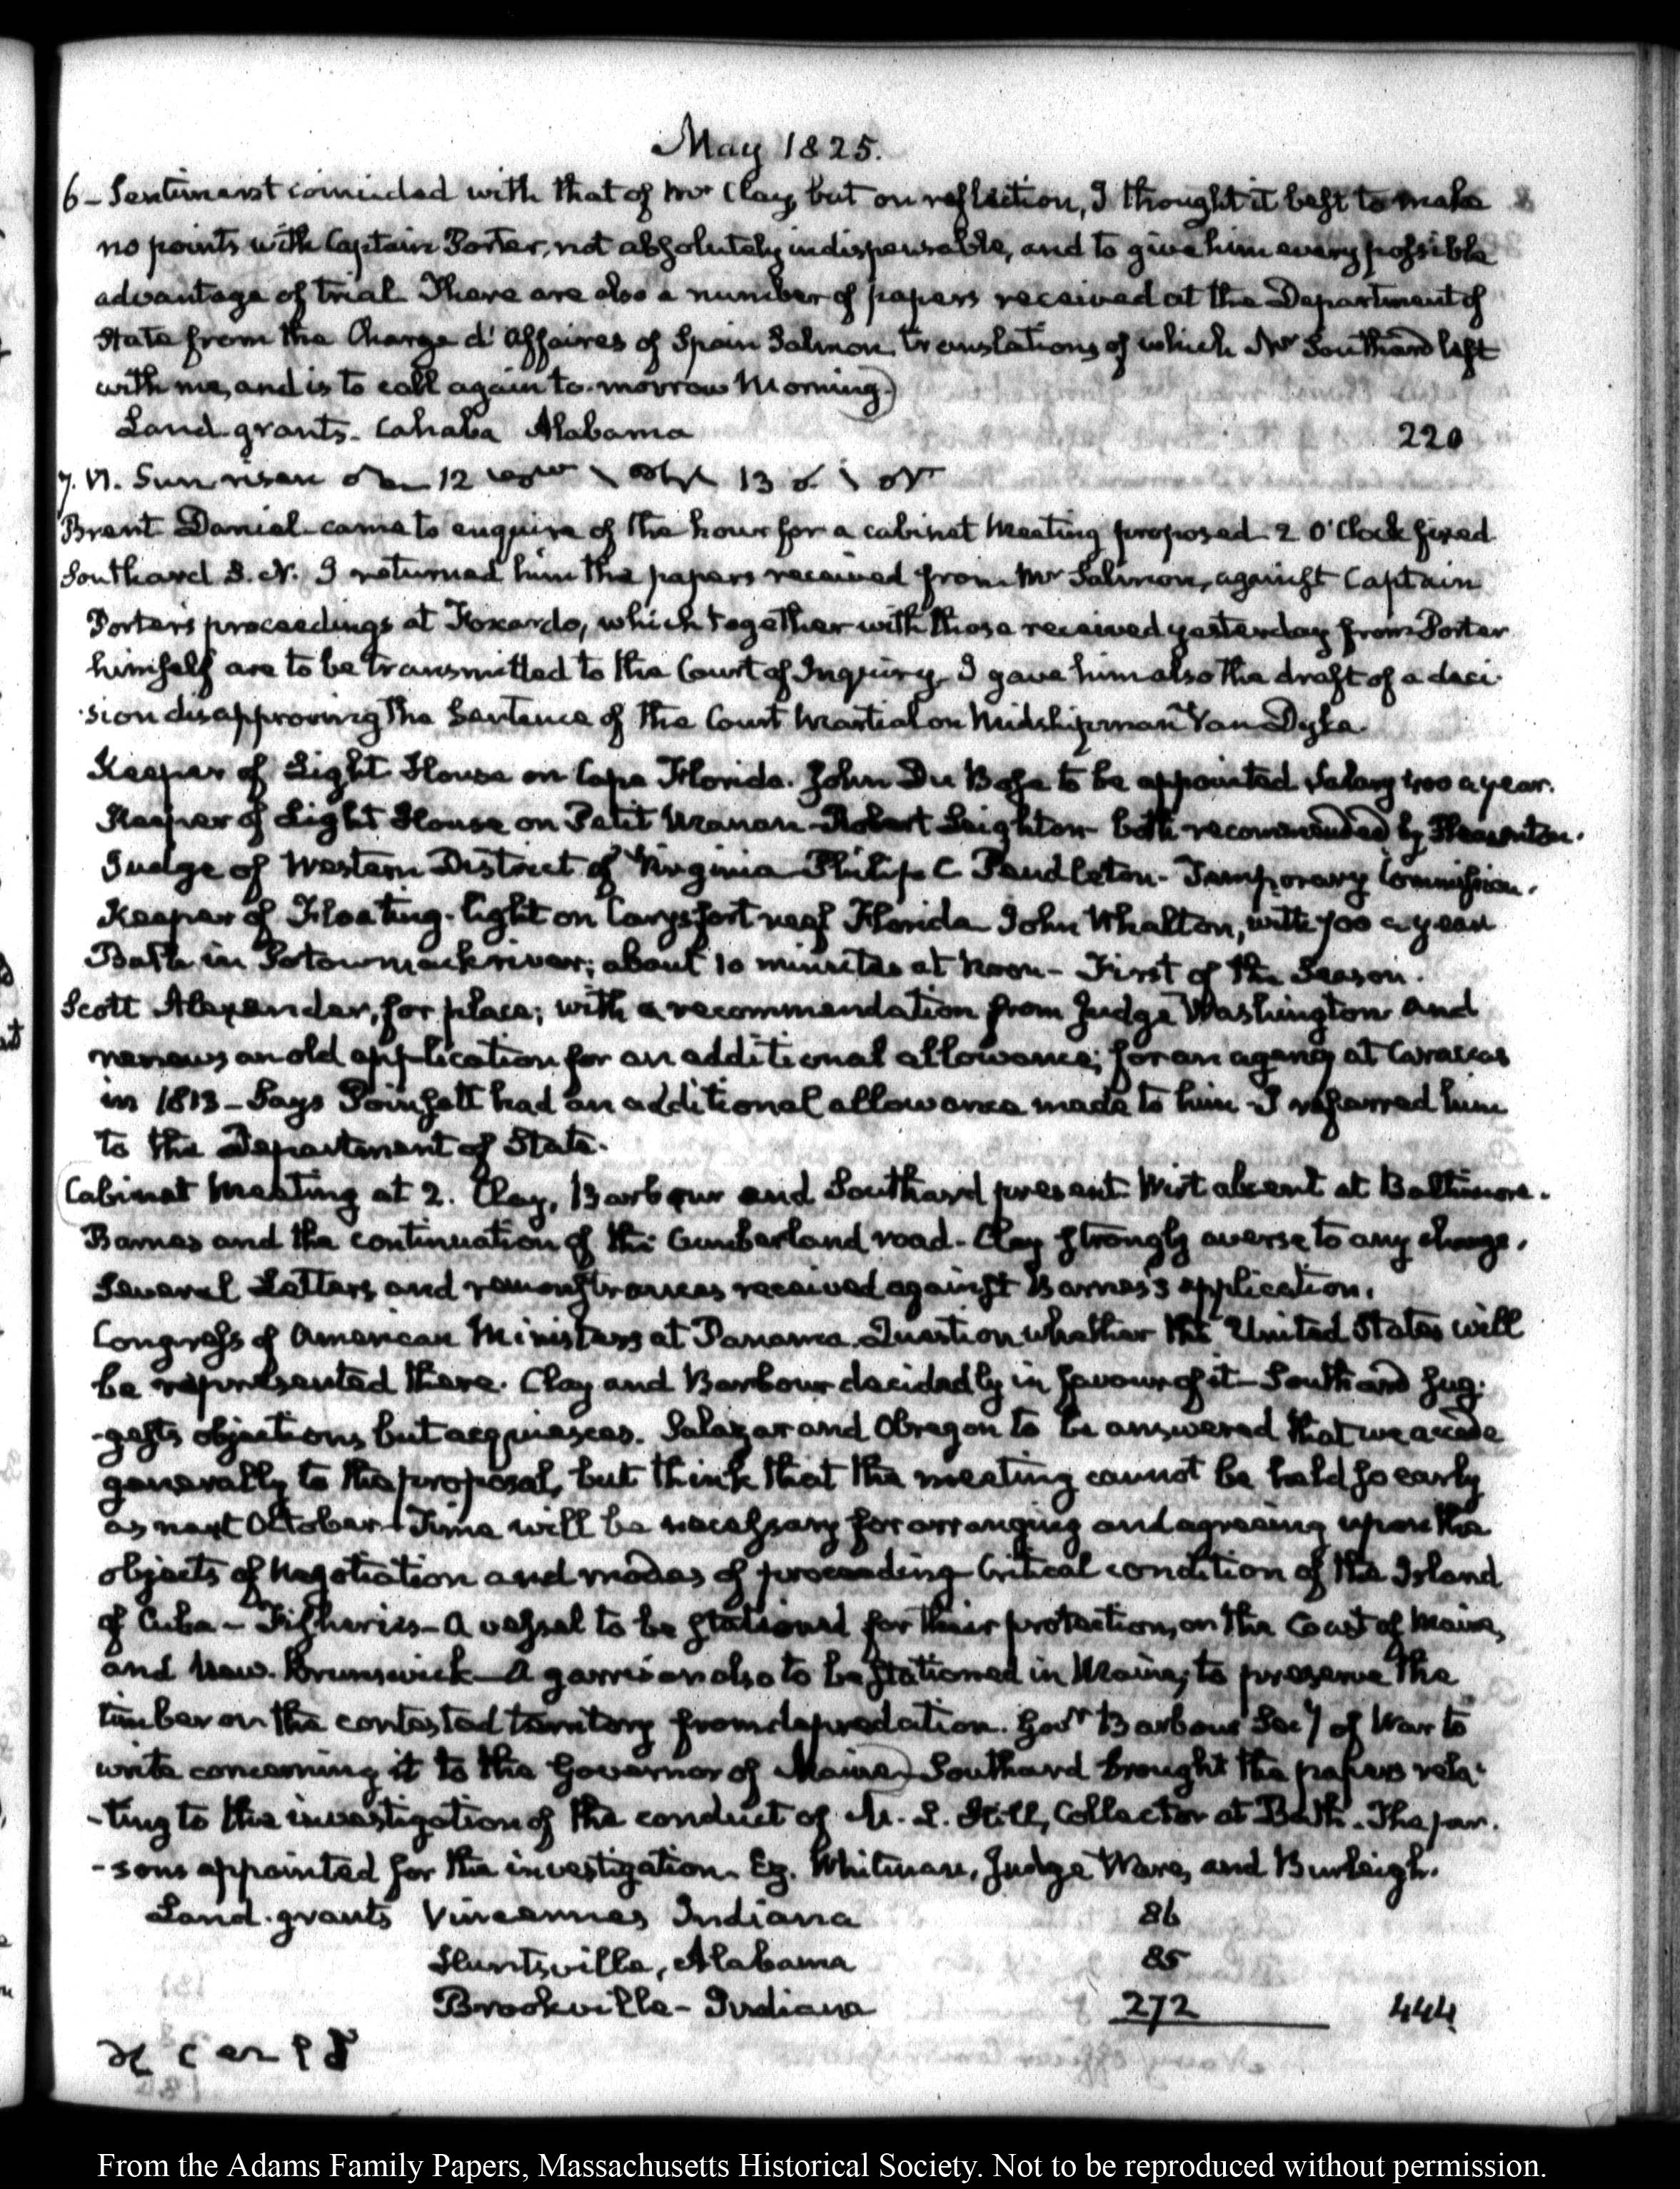 May 1825.
6 - Sentiment coincided with that of Mr Clay, but on reflection, I thought it best to make
no points with Captain Porter, not absolutely indispensable, and to give him every possible
advantage of trial. There are also a number of papers received at the Department of
State from the Charge d'Affaires of Spain Salmon translations of which Mr Southard left
with me, and is to call again to-morrow Morning.)
Land grants. Cahaba Alabama 220
7. VI. Sun risen 12 13
Brent Daniel came to enquire of the hour for a cabinet Meeting proposed 2 O'Clock fixed
Southard S. N. I returned him the papers received from Mr Salmon, against Captain
Porter's proceedings at Foxardo, which together with those received yesterday from Porter
himself are to be transmitted to the Court of Inquiry. I gave him also the draft of a deci-
-sion disapproving the Sentence of the Court Martial on Midshipman Van Dyke.
Keeper of Light House on Cape Florida. John Du Bose to be appointed Salary 400 a year.
Keeper of Light House on Petit Manan - Robert Leighton - both recommended by Pleasonton.
Judge of Western District of Virginia Philip C Pendleton - Temporary Commission.
Keeper of Floating-light on Carysfort reef Florida John Whalton, with 700 a year
Bath in Potowmack river; about 10 minutes at Noon - First of the Season.
Scott Alexander, for place; with a recommendation from Judge Washington and
renews an old application for an additional allowance; for an agency at Caraccas
in 1813 - Says Poinsett had an additional allowance made to him - I referred him
to the Department of State.
(Cabinet Meeting at 2. Clay, Barbour and Southard present. Wirt absent at Baltimore.
Barnes and the continuation of the Cumberland road - Clay strongly averse to any change.
Several Letters and remonstrances received against Barnes's application.
Congress of American Ministers at Panama. Question whether the United States will
be represented there. Clay and Barbour decidedly in favour of it - Southard sug-
-gests objections but acquiesces. Salazar and Obregon to be answered that we accede
generally to the proposal, but think that the meeting cannot be held so early
as next October - Time will be necessary for arranging and agreeing upon the
objects of Negotiation and modes of proceeding - Critical condition of the Island
of Cuba - Fisheries - A vessel to be stationed for their protection, on the Coast of Maine,
and New-Brunswick - A garrison also to be stationed in Maine; to preserve the
timber on the contested territory from depredation. Govr Barbour Secy of War to
write concerning it to the Governor of Maine) Southard brought the papers rela-
-ting to the investigation of the conduct of M. L. Hill, Collector at Bath. The per-
-sons appointed for the investigation. Ez. Whitman, Judge Ware, and Burleigh.
Land-grants Vincennes Indiana 86
Huntsville, Alabama 85
Brookville - Indiana 272 444
From the Adams Family Papers, Massachusetts Historical Society. Not to be reproduced without permission.